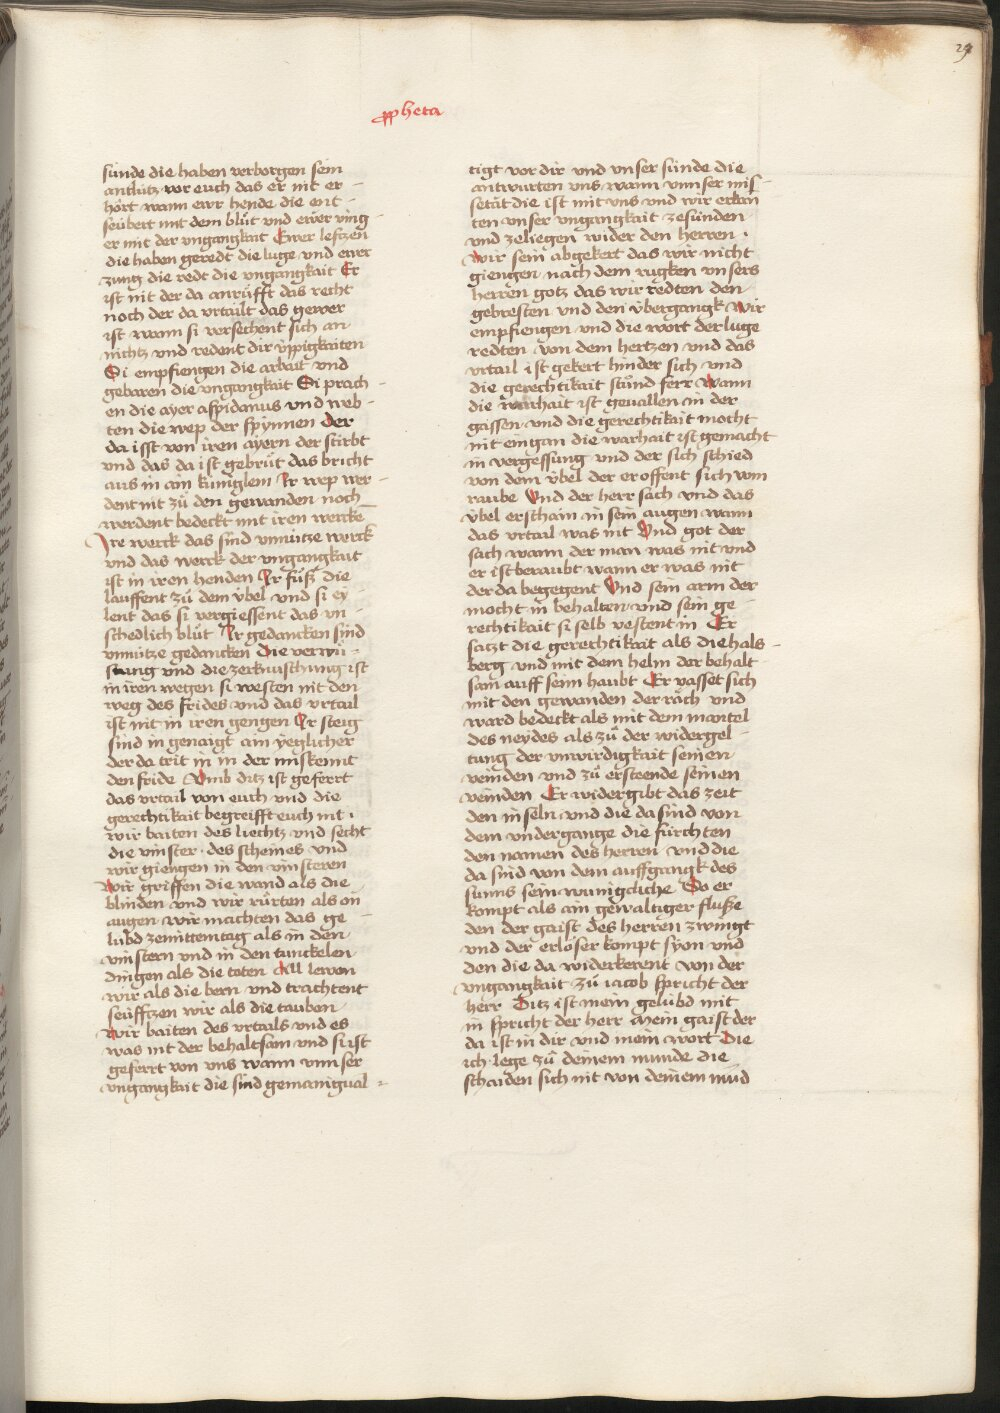 29
ꝓpheta
sünde die haben verborgen sein
antlütz vor euch das er nit er-
hört wann ewr hende die ent-
seübert mit dem blůt vnd ewer ving-
er mit der vngangkait Ewer leftzen
die haben geredt die luge vnd ewer
zung die redt die vngangkait Er
ist nit der da anrüfft das recht
noch der da vrtailt das gewer
ist wann si versechent sich an
nichtz vnd redent dir üppigkaiten
Si empfiengen die arbait vnd
gebaren die vngangkait Si prach-
en die ayer aspidanus vnd web-
ten die wep der spynnen der
da isst von iren ayern der stirbt
vnd das da ist gebrüt das bricht
aus in ain küniglein Ir wep wer-
dent nit zů den gewanden noch
werdent bedeckt mit iren wercke
Ire werck das sind vnnütze werck
vnd das werck der vngangkait
ist in iren henden Ir füsß die
lauffent zů dem vbel vnd si ey-
lent das si vergiessent das vn-
schedlich blůt Ir gedancken sind
vnnütze gedancken Die verwü-
stung vnd die zerknischung ist
in iren wegen si westen nit den
weg des frides vnd das vrtail
ist nit in iren gengen Ir steig
sind in genaigt ain yeglicher
der da trit in in der miskennt
den fride Vmb ditz ist geferrt
das vrtail von euch vnd die
gerechtikait begreifft euch nit.
wir baiten des liechtz vnd secht
die vinster. des scheines vnd
wir giengen in den vinsteren
Wir griffen die wand als die
blinden vnd wir rürten als on
augen wir machten das ge-
lubd zemittemtag als in den
vinstern vnd in den tunckelen
dingen als die toten All lewen
wir als die bern vnd trachtent
seüfftzen wir als die tauben
Wir baiten des vrtails vnd es
was nit der behaltsam vnd si ist
geferrt von vns wann vnnser
vngangkait die sind gemanigual-
tigt vor dir vnd vnser sünde die
antwurten vns wann vnnser mis-
setät die ist mit vns vnd wir erkan
ten vnser vngangkait zesünden
vnd zeliegen wider den herren.
Wir sein abgekert das wir nicht
giengen nach dem rugken vnsers
herren gotz das wir redten den
gebresten vnd den vbergangk Wir
empfiengen vnd die wort der luge
redten von dem hertzen vnd das
vrtail ist gekert hinder sich vnd
die gerechtikait stůnd ferr Wann
die warhait ist geuallen in der
gassen vnd die gerechtikait mocht
nit eingan die warhait ist gemacht
in vergessung vnd der sich schied
von dem vbel der er offent sich vom
raube Vnd der herr sach vnd das
vbel erschain in sein augen wann
das vrtail was nit Vnd got der
sach wann der man was nit vnd
er ist beraubt wann er was nit
der da begegent Vnd sein arm der
mocht in behalten vnd sein ge-
rechtikait si selb vestent in Er
satzt die gerechtikait als die hals-
berg vnd mit dem helm der behalt-
sam auff seim haubt Er vasset sich
mit den gewanden der räch vnd
ward bedeckt als mit dem mantel
des neydes als zů der widergel-
tung der vnwirdigkait seinen
veinden vnd zů ersteende seinen
veinden Er widergibt das zeit
den inseln vnd die da sind von
dem vndergange die fürchten
den namen des herren vnd die
da sind von dem auffgangk des
sunns sein wunigcliche So er
kompt als ain gewaltiger flusße
den der gaist des herren zwingt
vnd der erlöser kompt syon vnd
den die da widerkerent von der
vngangkait zů iacob spricht der
herr Ditz ist mein gelübd mit
in spricht der herr Mein gaist der
da ist in dir vnd mein wort Die
ich lege zů deinem munde die
schaiden sich nit von deinem mud